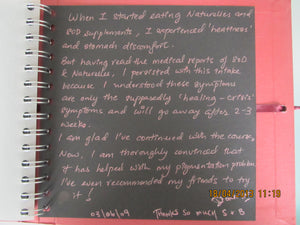 When I started eating Naturelles and
SOD supplements, I experienced 'heatiness'
and stomach discomfort.
But having read the medical reports of SOD
& Naturelles, I persisted with this intake
because I understood these symptoms
are only the supposedly 'healing-crisis'
symptoms and will go away after 2-3
weeks.
I am glad I've continued with the course.
Now, I am thoroughly convinced that
it has helped with my pigmentation problem.
I've even recommended my friends to try
it!
03/06/09 Thanks so much S + B
11:19